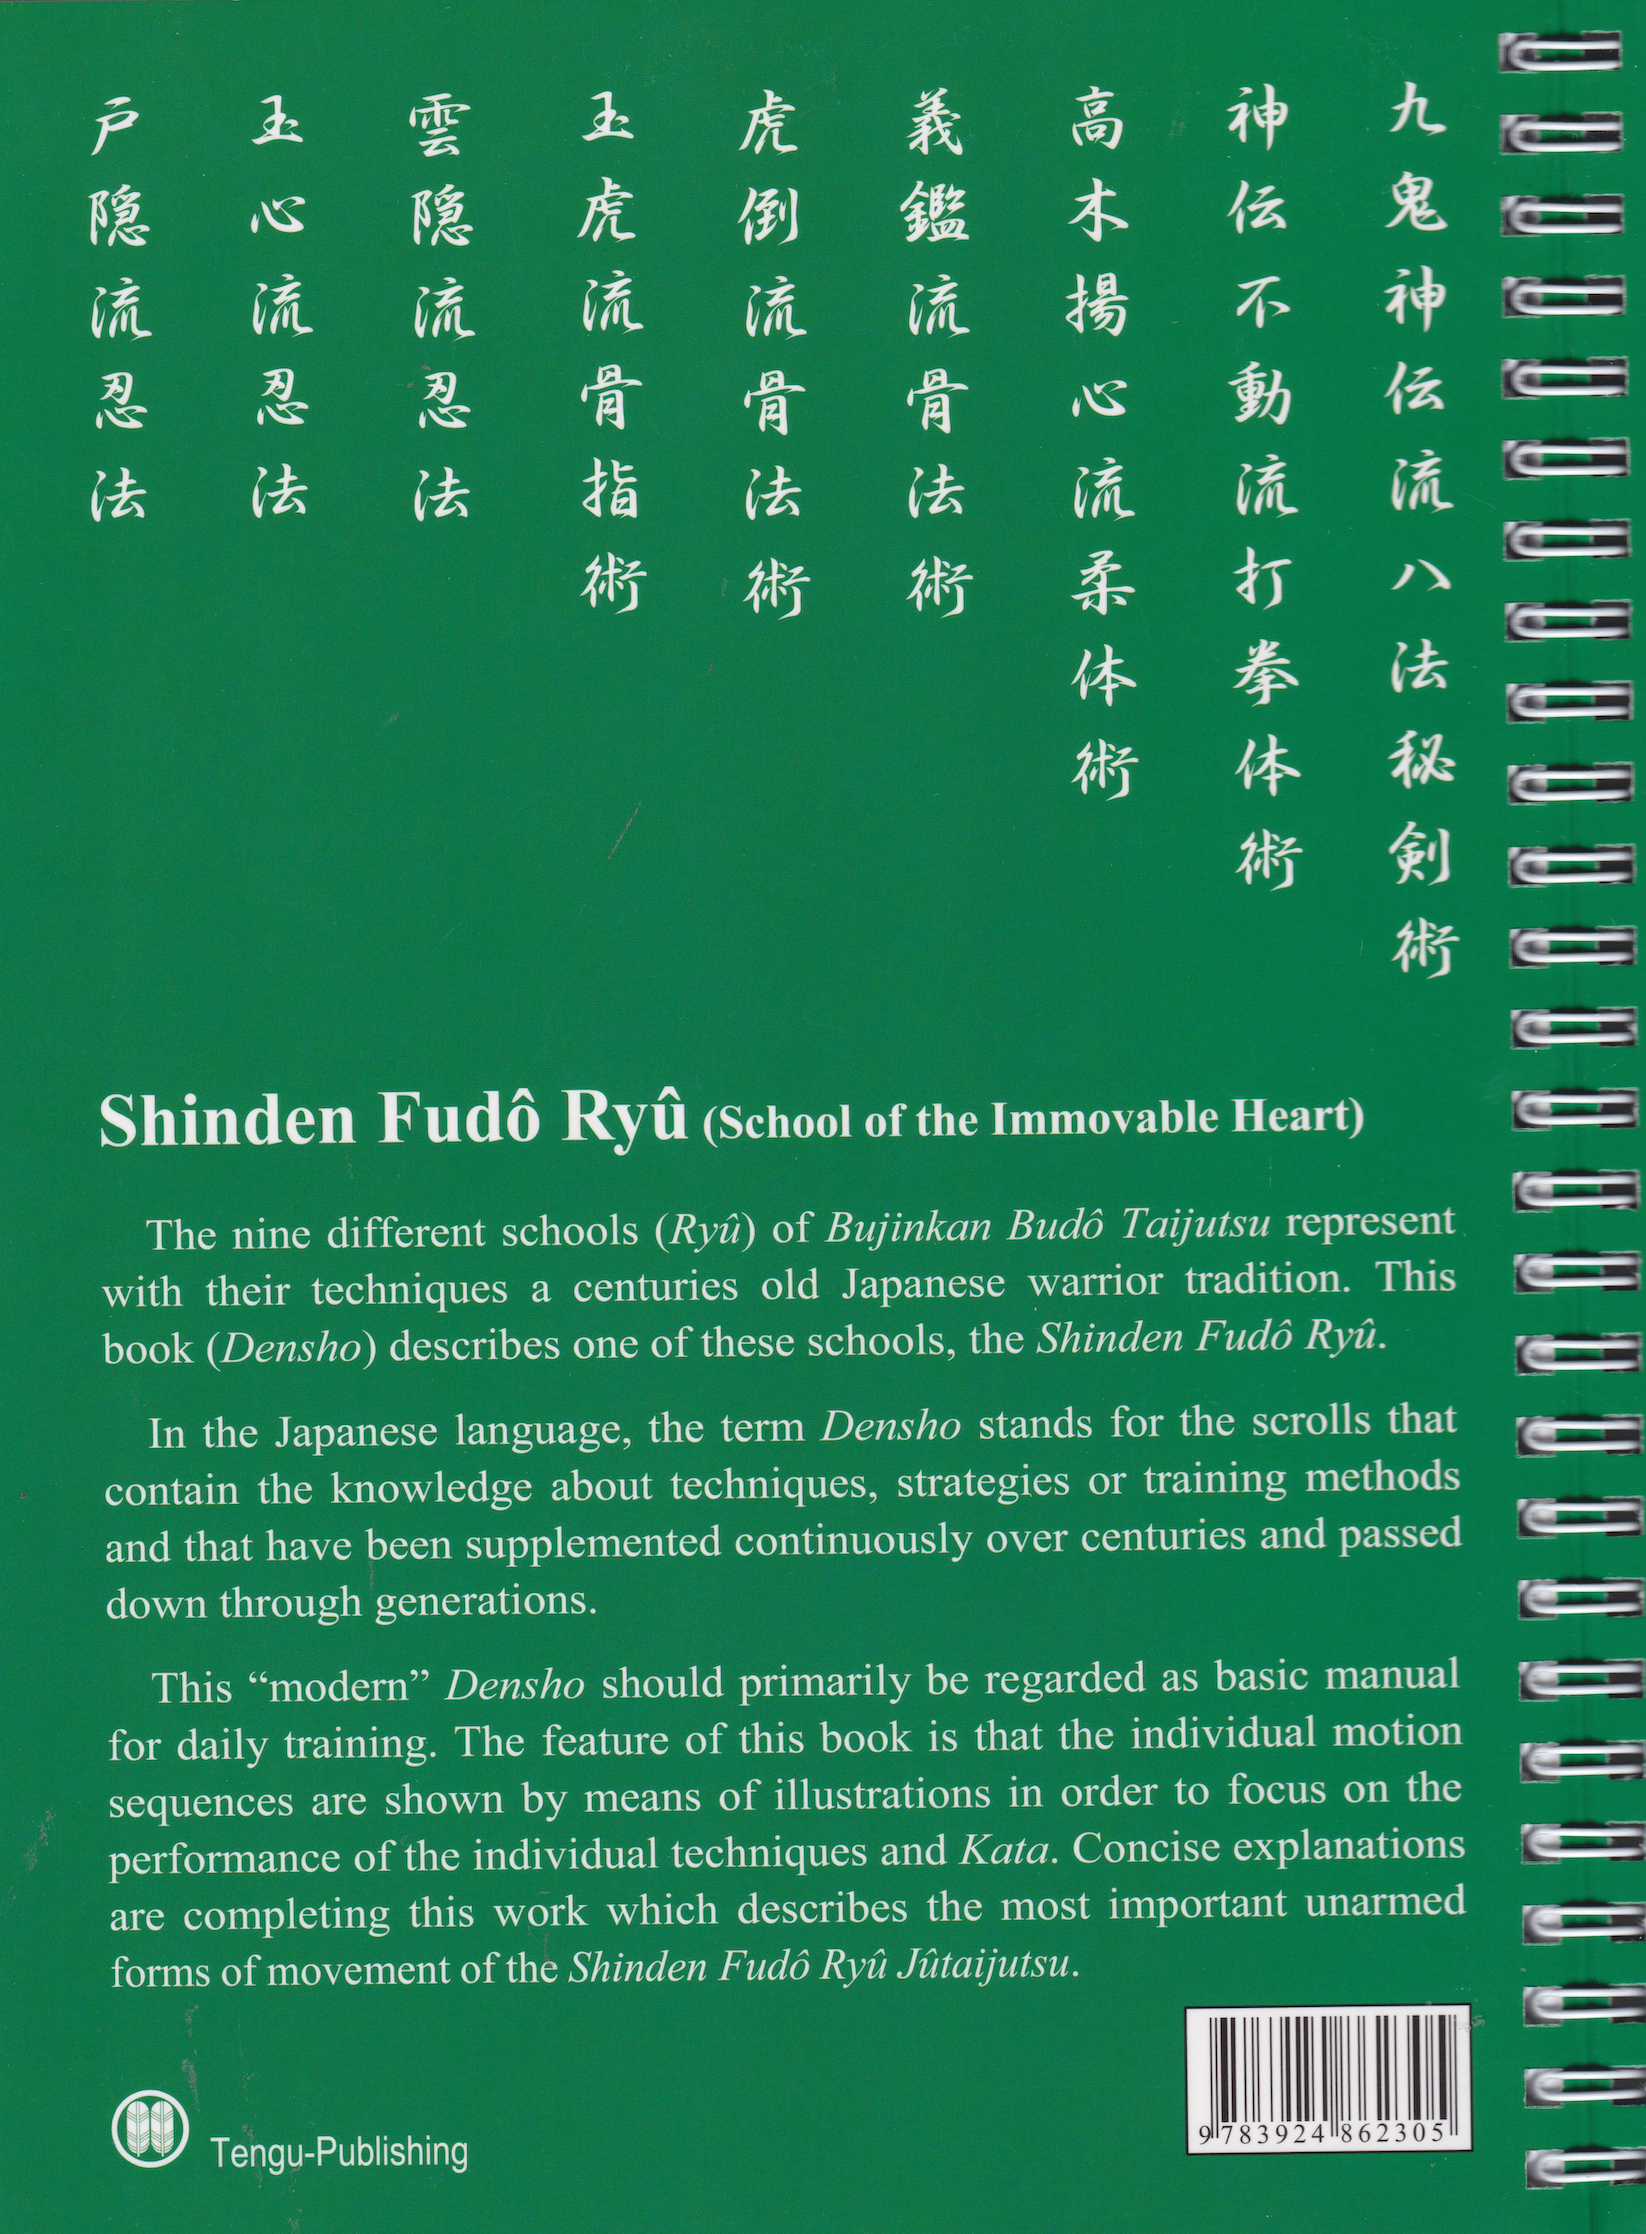 九鬼神伝流八法秘剣術
神伝不動流打拳体術
高木揚心流柔体術
義鑑流骨法術
虎倒流骨法術
玉虎流骨指術
雲隠流忍法
玉心流忍法
戸隠流忍法
Shinden Fudô Ryû (School of the Immovable Heart)
The nine different schools (Ryû) of Bujinkan Budô Taijutsu represent
with their techniques a centuries old Japanese warrior tradition. This
book (Densho) describes one of these schools, the Shinden Fudô Ryû.
In the Japanese language, the term Densho stands for the scrolls that
contain the knowledge about techniques, strategies or training methods
and that have been supplemented continuously over centuries and passed
down through generations.
This “modern” Densho should primarily be regarded as basic manual
for daily training. The feature of this book is that the individual motion
sequences are shown by means of illustrations in order to focus on the
performance of the individual techniques and Kata. Concise explanations
are completing this work which describes the most important unarmed
forms of movement of the Shinden Fudô Ryû Jûtaijutsu.
9 783924 862305
Tengu-Publishing